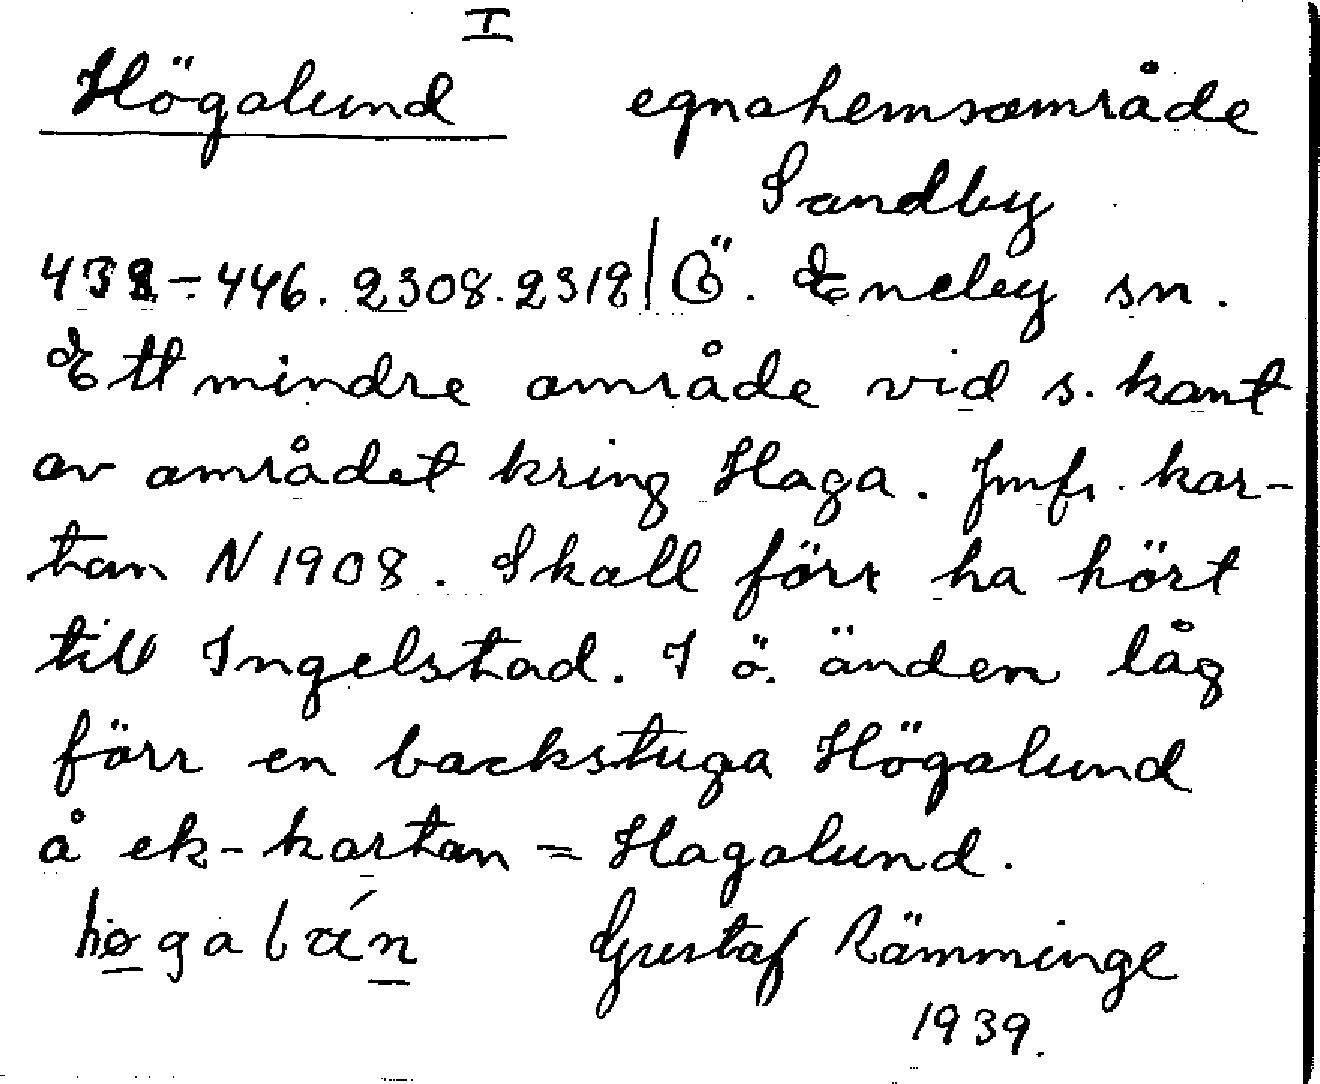 I
Högalund egnahemsområde
Sandby
438-446. 2308. 2318 | Ö. Eneby sn.
Ett mindre område vid s. kant
av området kring Haga. Jmfr. kar-
tan N 1908. Skall förr ha hört
till Ingelstad. I ö. änden låg
förr en backstuga Högalund
å ek-kartan = Hagalund.
Gustaf Rämminge
1939.